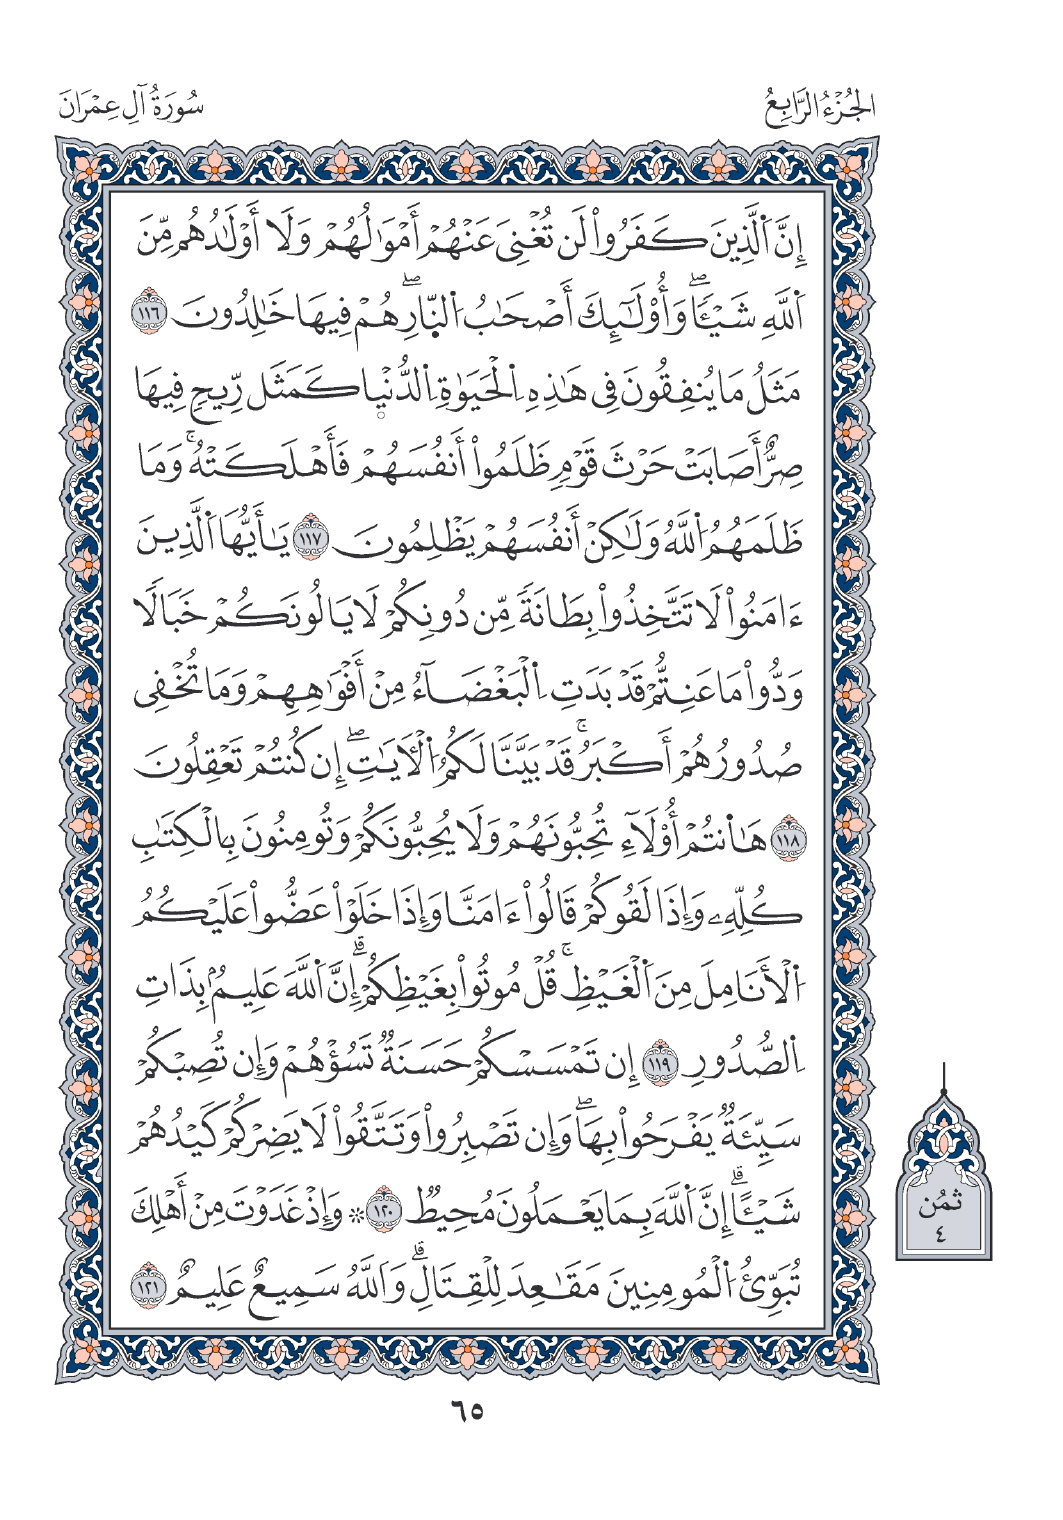 الجُزْءُ الرَّابِعُ
سُورَةُ آلِ عِمْرَانَ
إِنَّ اَ۬لَّذِينَ كَفَرُواْ لَن تُغْنِيَ عَنْهُمْ أَمْوَٰلُهُمْ وَلَا أَوْلَٰدُهُم مِّنَ
اَ۬للَّهِ شَيْـٔٗاۖ وَأُوْلَٰٓئِكَ أَصْحَٰبُ اُ۬لنّ۪ارِۖ هُمْ فِيهَا خَٰلِدُونَ ١١٦
مَثَلُ مَا يُنفِقُونَ فِي هَٰذِهِ اِ۬لْحَيَوٰةِ اِ۬لدُّنْي۪ا كَمَثَلِ رِيحٖ فِيهَا
صِرٌّ أَصَابَتْ حَرْثَ قَوْمٖ ظَلَمُواْ أَنفُسَهُمْ فَأَهْلَكَتْهُۚ وَمَا
ظَلَمَهُمُ اُ۬للَّهُ وَلَٰكِنْ أَنفُسَهُمْ يَظْلِمُونَ ١١٧ يَٰأَيُّهَا اَ۬لَّذِينَ
ءَامَنُواْ لَا تَتَّخِذُواْ بِطَانَةٗ مِّن دُونِكُمْ لَا يَالُونَكُمْ خَبَالٗا
وَدُّواْ مَا عَنِتُّمْ قَدْ بَدَتِ اِ۬لْبَغْضَآءُ مِنْ أَفْوَٰهِهِمْ وَمَا تُخْفِي
صُدُورُهُمْ أَكْبَرُۚ قَدْ بَيَّنَّا لَكُمُ اُ۬لْأٓيَٰتِۖ إِن كُنتُمْ تَعْقِلُونَ
١١٨ هَٰا۬نتُمْ أُوْلَآءِ تُحِبُّونَهُمْ وَلَا يُحِبُّونَكُمْ وَتُومِنُونَ بِالْكِتَٰبِ
كُلِّهِۦ وَإِذَا لَقُوكُمْ قَالُواْ ءَامَنَّا وَإِذَا خَلَوْاْ عَضُّواْ عَلَيْكُمُ
اُ۬لْأَنَامِلَ مِنَ اَ۬لْغَيْظِۚ قُلْ مُوتُواْ بِغَيْظِكُمْۗ إِنَّ اَ۬للَّهَ عَلِيمُۢ بِذَاتِ
اِ۬لصُّدُورِ ١١٩ إِن تَمْسَسْكُمْ حَسَنَةٞ تَسُؤْهُمْ وَإِن تُصِبْكُمْ
سَيِّئَةٞ يَفْرَحُواْ بِهَاۖ وَإِن تَصْبِرُواْ وَتَتَّقُواْ لَا يَضِرْكُمْ كَيْدُهُمْ
شَيْـًٔاۗ إِنَّ اَ۬للَّهَ بِمَا يَعْمَلُونَ مُحِيطٞ ١٢٠ ۞ وَإِذْ غَدَوْتَ مِنْ أَهْلِكَ
تُبَوِّئُ اُ۬لْمُومِنِينَ مَقَٰعِدَ لِلْقِتَالِۗ وَاَللَّهُ سَمِيعٌ عَلِيمٌ ١٢١
ثُمُن
٤
٦٥